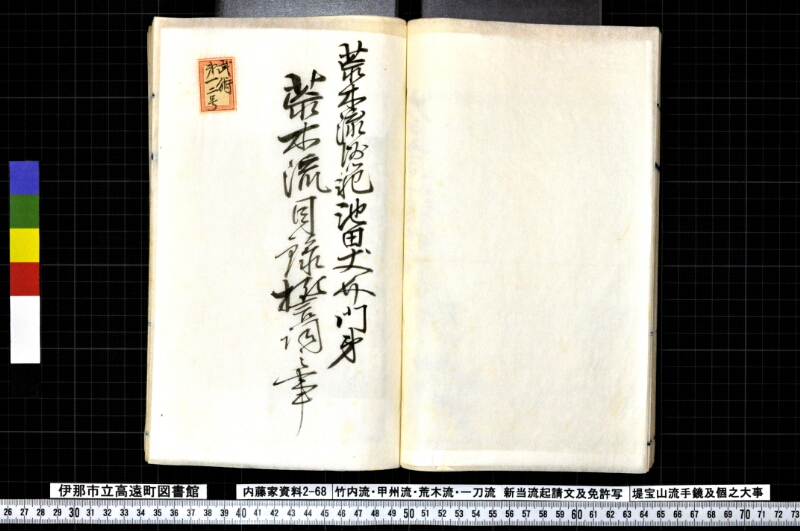 荒木流師範池田丈右衛門弟
荒木流目録誓詞之事
武術
第一二号
伊那市立高遠町図書館
内藤家資料2-68
竹内流・甲州流・荒木流・一刀流 新当流起請文及免許写
堤宝山流手鏡及個之大事
26 27 28 29 30 31 32 33 34 35 36 37 38 39 40 41 42 43 44 45 46 47 48 49 50 51 52 53 54 55 56 57 58 59 60 61 62 63 64 65 66 67 68 69 70 71 72 73